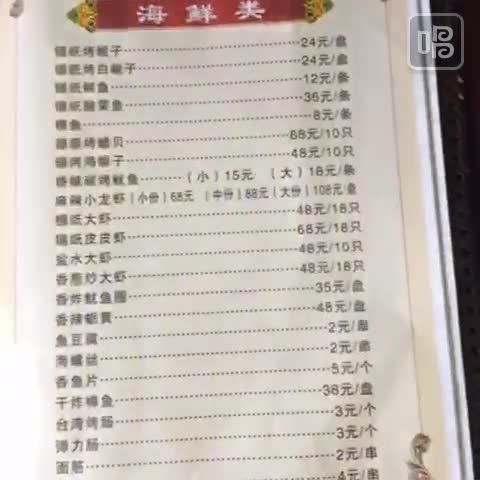 海鲜类
唱
锡纸烤蚬子 24元/盘
锡纸烤白蚬子 24元/盘
锡纸鲫鱼 12元/条
锡纸酸菜鱼 36元/条
鱼 8元/条
68元/10只
48元/10只
烤鱿鱼 (小) 15元 (大) 18元/条
麻辣小龙虾 (小份) 68元 (中份) 88元 (大份) 108元/盘
锡纸大虾 48元/18只
锡纸皮皮虾 68元/18只
盐水大虾 48元/10只
香葱炒大虾 48元/18只
香炸鱿鱼圈 35元/盘
香辣蛎黄 48元/盘
鱼豆腐 2元/串
海螺丝 2元/串
香鱼片 5元/个
干炸鱼 38元/盘
台湾烤肠 3元/个
弹力肠 3元/个
面筋 2元/串
4元/串